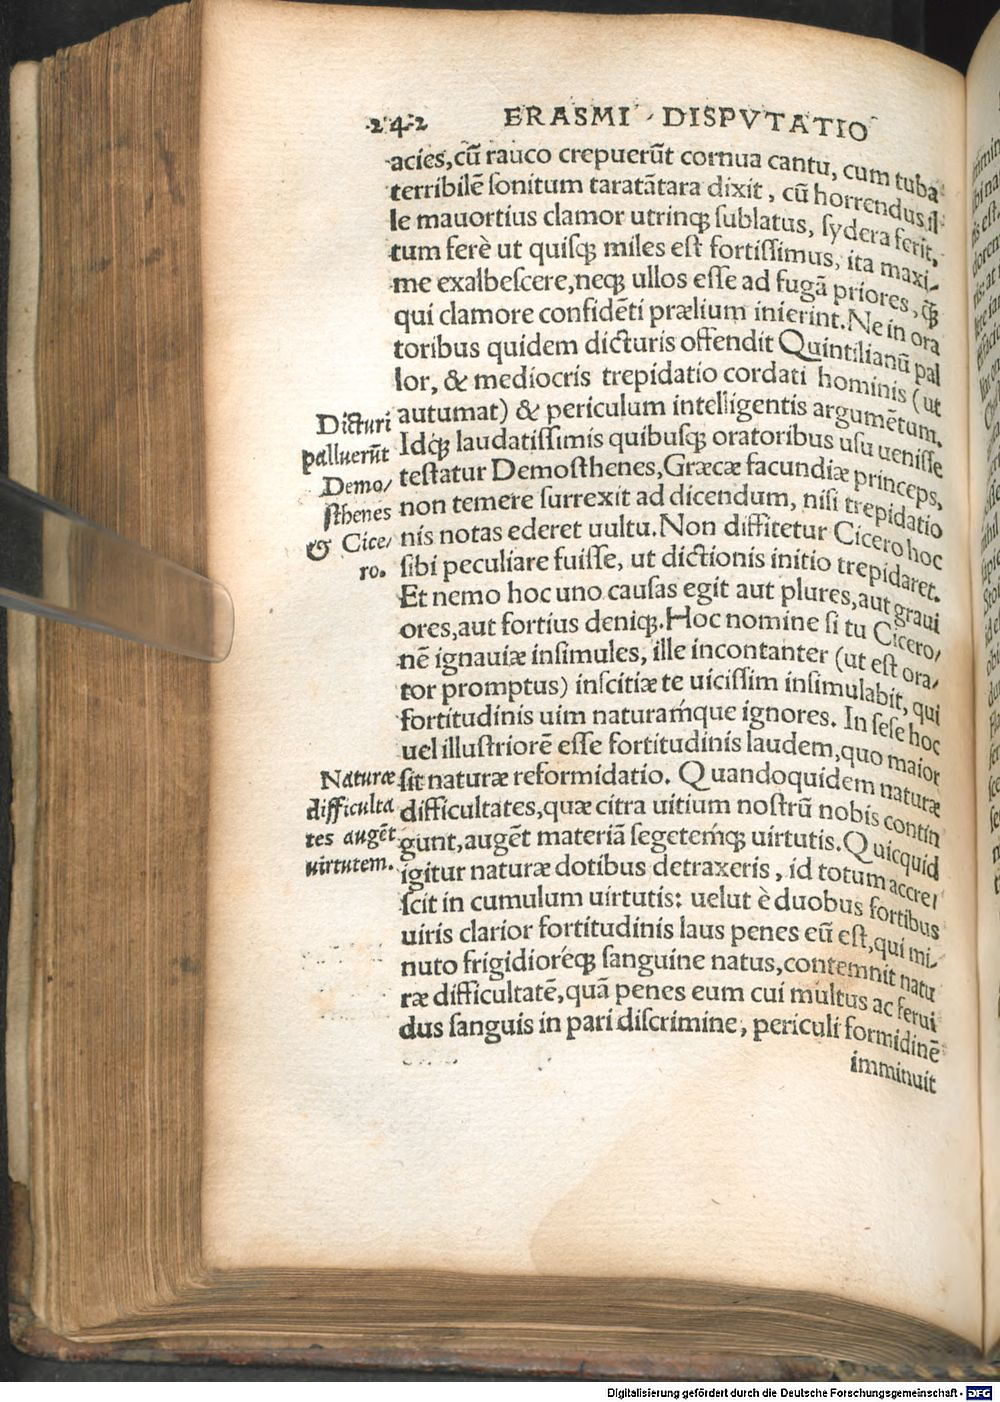 242 ERASMI DISPVTATIO
acies, cū rauco crepuerūt cornua cantu, cum tuba
terribilē ſonitum taratātara dixit, cū horrendus il-
le mauortius clamor utrinqꝫ ſublatus, ſydera ferit,
tum ferè ut quiſqꝫ miles eſt fortiſſimus, ita maxi-
me exalbeſcere, neqꝫ ullos eſſe ad fugā priores, q̄ꝫ
qui clamore confidēti prælium inierint. Ne in ora
toribus quidem dicturis offendit Quintilianū pal
lor, & mediocris trepidatio cordati hominis (ut
autumat) & periculum intelligentis argumētum.
Idqꝫ laudatiſſimis quibuſqꝫ oratoribus uſu ueniſſe
teſtatur Demoſthenes, Græcæ facundiæ princeps,
non temere ſurrexit ad dicendum, niſi trepidatio
nis notas ederet uultu. Non diffitetur Cicero hoc
ſibi peculiare fuiſſe, ut dictionis initio trepidaret.
Et nemo hoc uno cauſas egit aut plures, aut graui
ores, aut fortius deniqꝫ. Hoc nomine ſi tu Cicero/
nē ignauiæ inſimules, ille incontanter (ut eſt ora/
tor promptus) inſcitiæ te uiciſſim inſimulabit, qui
fortitudinis uim naturaḿque ignores. In ſeſe hoc
uel illuſtriorē eſſe fortitudinis laudem, quo maior
ſit naturæ reformidatio. Quandoquidem naturæ
difficultates, quæ citra uitium noſtrū nobis contin
gunt, augēt materiā ſegeteḿqꝫ uirtutis. Quicquid
igitur naturæ dotibus detraxeris, id totum accre/
ſcit in cumulum uirtutis: uelut è duobus fortibus
uiris clarior fortitudinis laus penes eū eſt, qui mi-
nuto frigidioréqꝫ ſanguine natus, contemnit natu
ræ difficultatē, quā penes eum cui multus ac ferui
dus ſanguis in pari diſcrimine, periculi formidinē
imminuit
Dicturi
palluerūt
Demo/
ſthenes
& Cice/
ro.
Naturæ
difficulta
tes augēt
uirtutem.
Digitalisierung gefördert durch die Deutsche Forschungsgemeinschaft - DFG